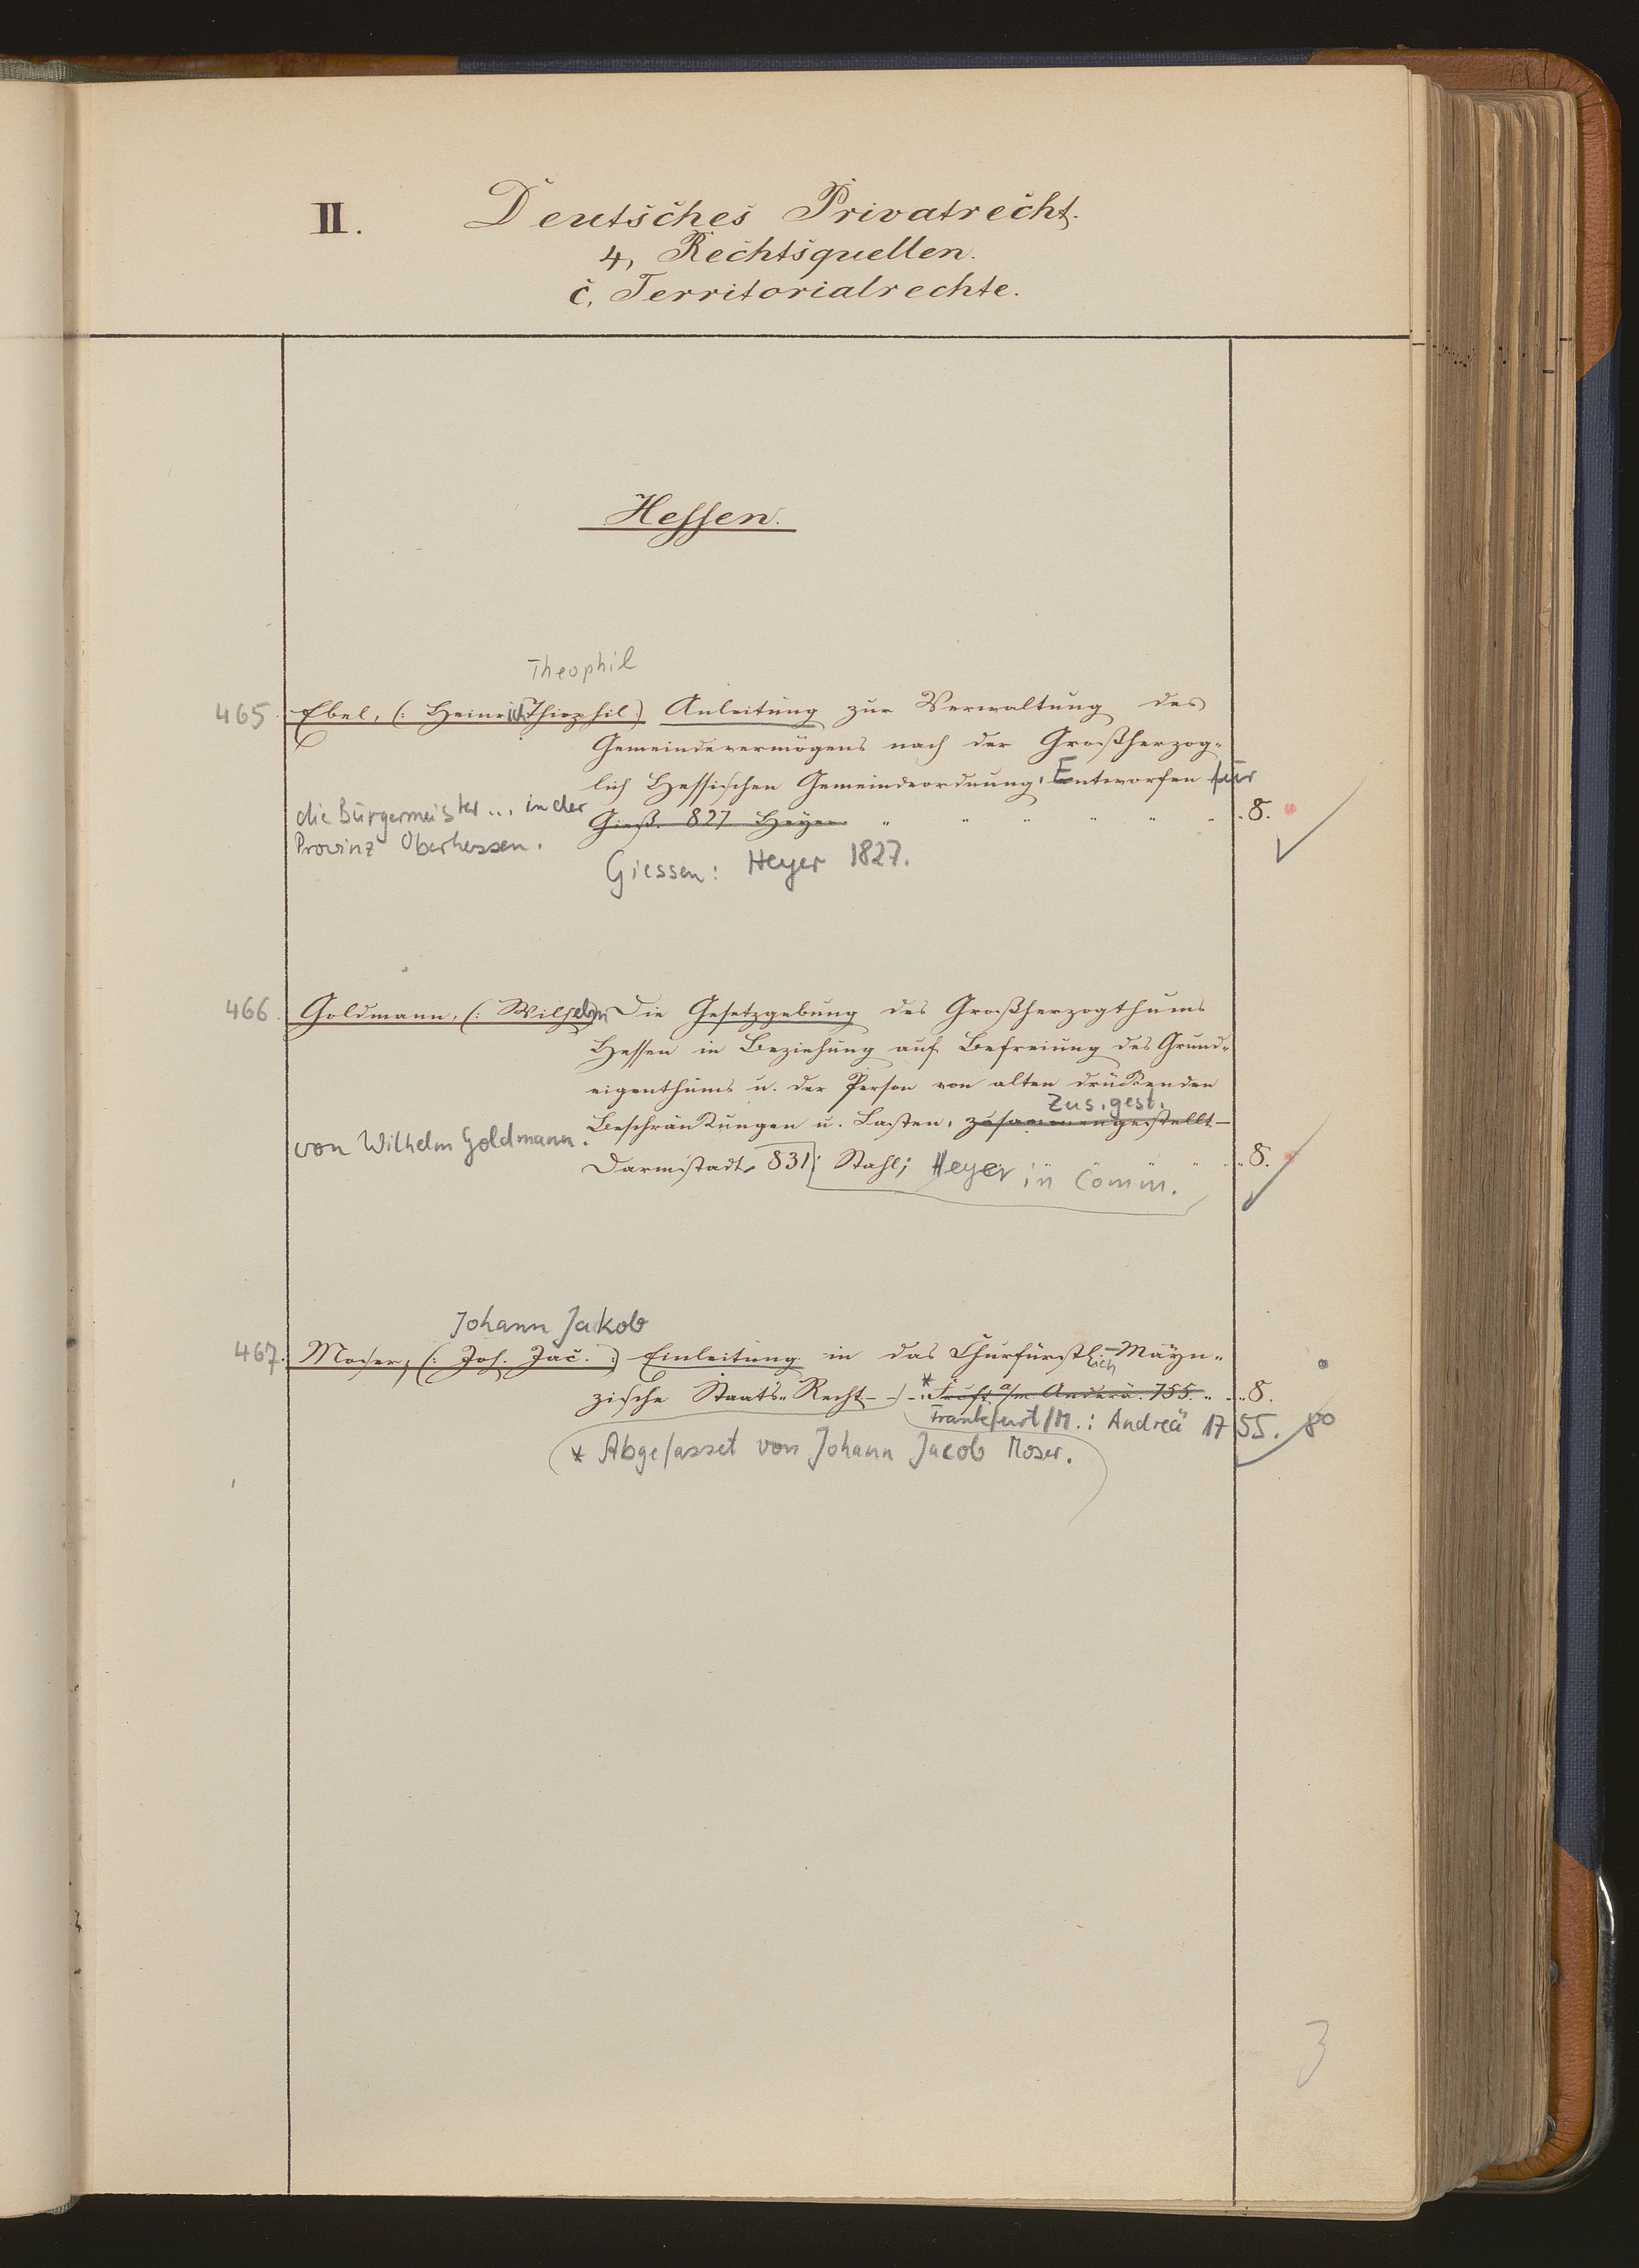 II. Deutsches Privatrecht.
4, Rechtsquellen.
c, Territorialrechte.
Hessen.
Theophil
465. Ebel, (: Heinrich Theophil :) Anleitung zur Verwaltung des
Gemeindevermögens nach der Großherzog-
lich Hessischen Gemeindeordnung. Entworfen für
die Bürgermeister... in der
Provinz Oberhessen.
Gieß. 827 Heyer " " " " " " 8.
Giessen: Heyer 1827.
466. Goldmann, (: Wilhelm Die Gesetzgebung des Großherzogthums
Hessen in Beziehung auf Befreiung des Grund-
eigenthums u. der Person von alten drückenden
Zus.gest.
Beschränkungen u. Lasten, zusammengestellt
von Wilhelm Goldmann.
Darmstadt, 831; Stahl; Heyer in Comm. 8.
Johann Jakob
467. Moser, (: Joh. Jac. :) Einleitung in das Churfürstlich-Mäyn-
zische Staats-Recht * Frcft a/m Andreä. 755. " 8.
Frankfurt/M.: Andreä 1755. 8°
* Abgefasset von Johann Jacob Moser.
3